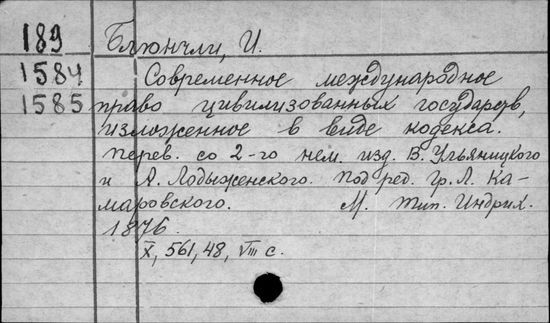 189 Блюнчли, И.
1584 Современное международное
1585 право цивилизованных государств,
изложенное в виде кодекса.
Перев. со 2-го нем. изд. В. Ульяницкого
и А. Лодыженского. Под ред. Гр. Л. Ка-
маровского. М. Тип. Индрих.
1876.
X, 561, 48, VIII с.